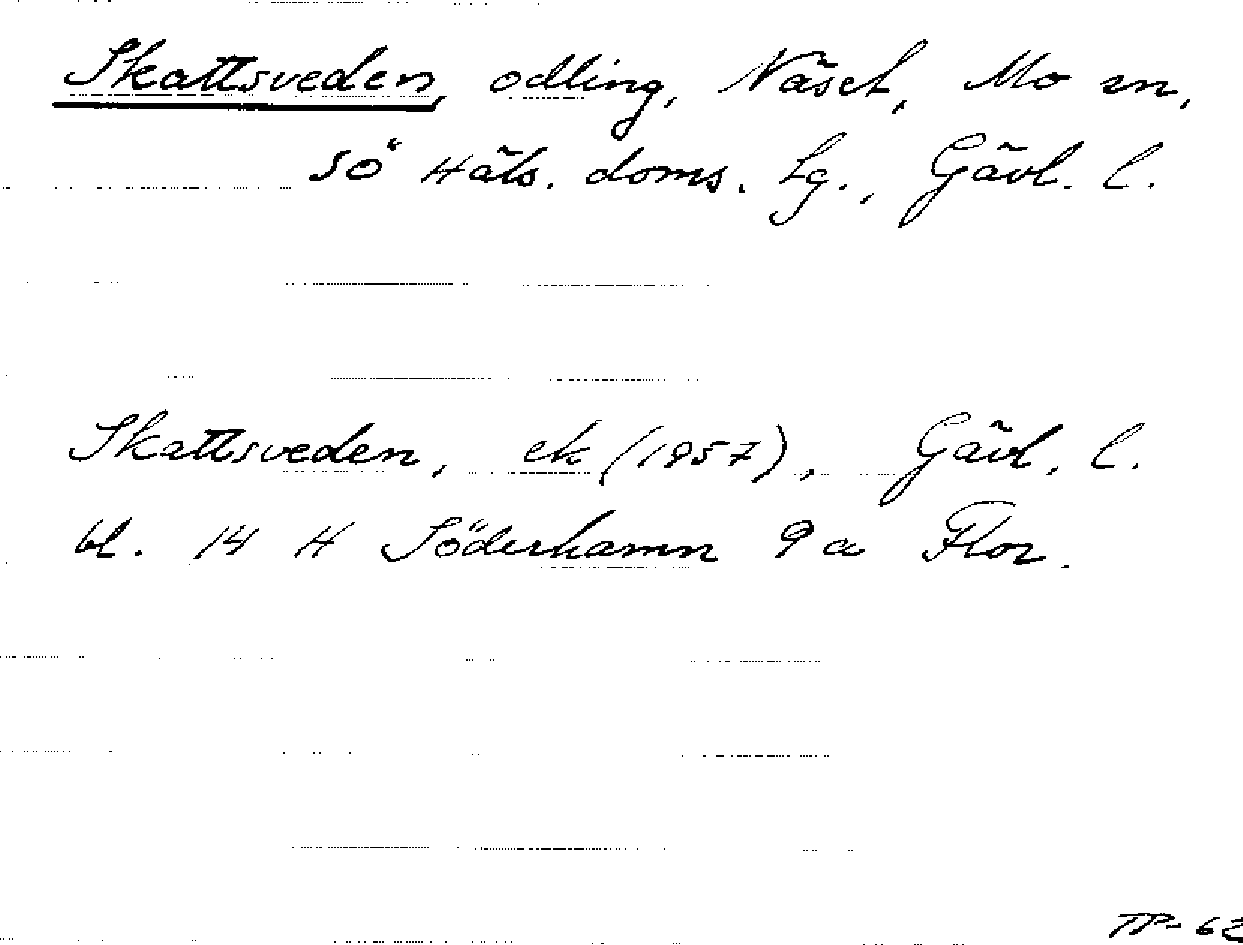 Skattsveden, odling, Näset, Mo sn,
sö Häls. doms. Lg., Gävl. l.
Skattsveden, ek (1957), Gävl. l.
bl. 14 H Söderhamn 9 a Flor.
TP-62